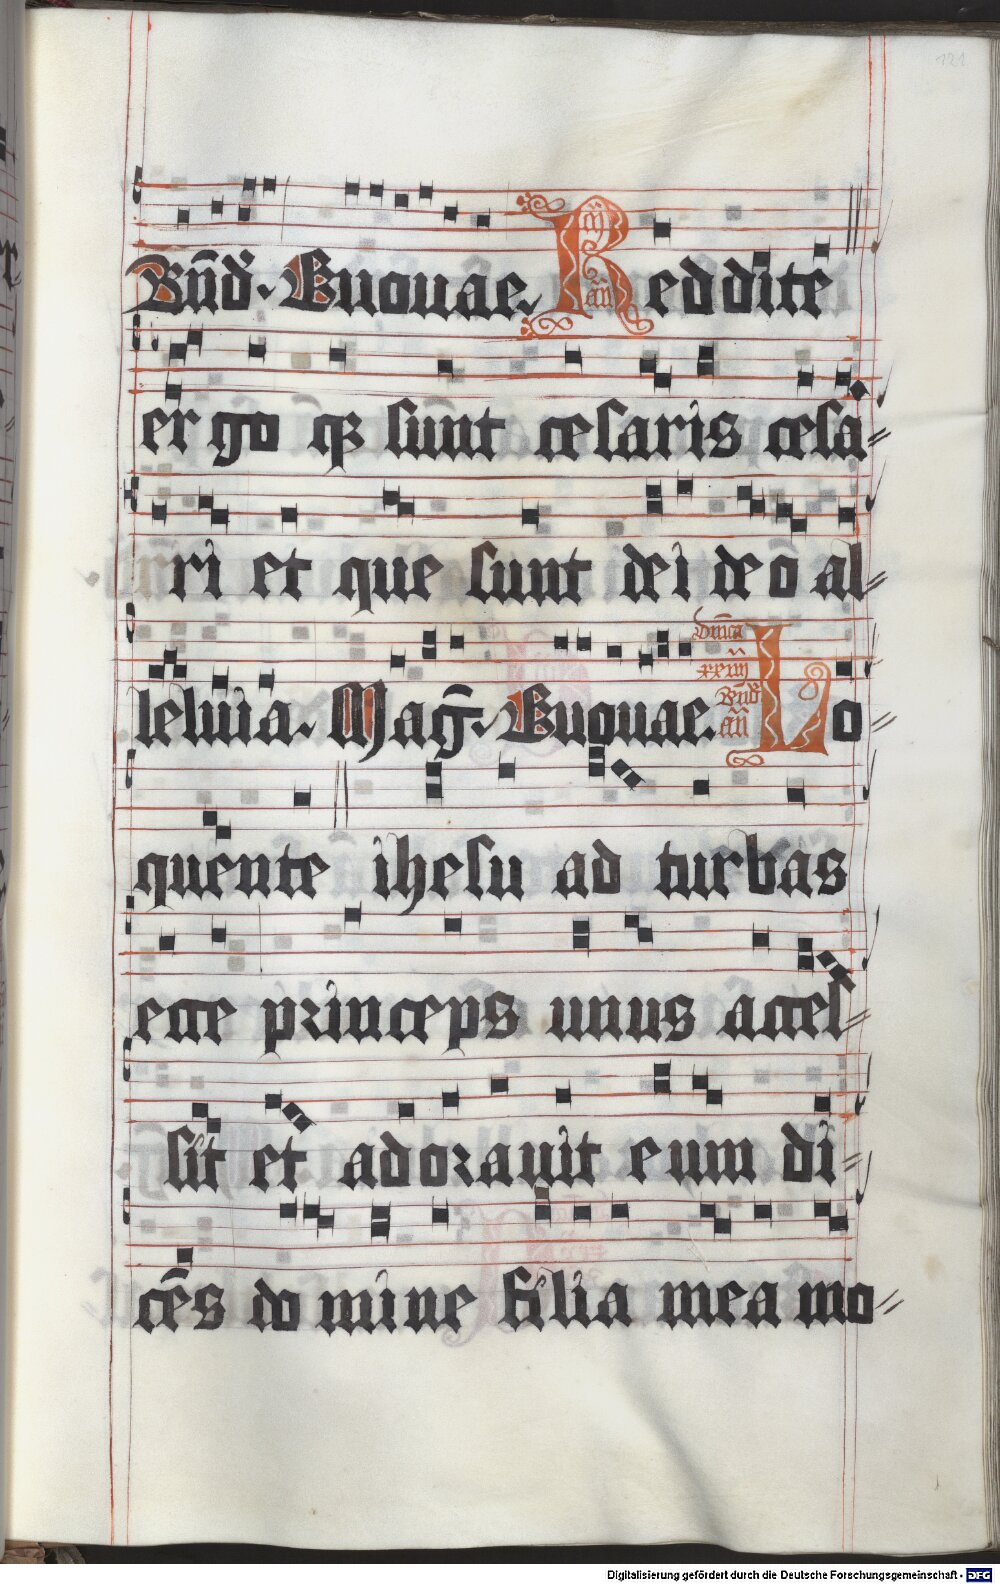 121
Bn̄d. Euouae. Reddite
mg̃
an̄
ergo qȝ sunt cesaris cesa⸗
ri et que sunt dei deō al⸗
leluia. Mag̃. Euouae. Lo⸗
dnīca
xxiiij
Bn̄d
an̄
quente ihesu ad turbas
ecce princeps unus acces⸗
sit et adorauit eum di⸗
cēs domine filia mea mo⸗
Digitalisierung gefördert durch die Deutsche Forschungsgemeinschaft - DFG